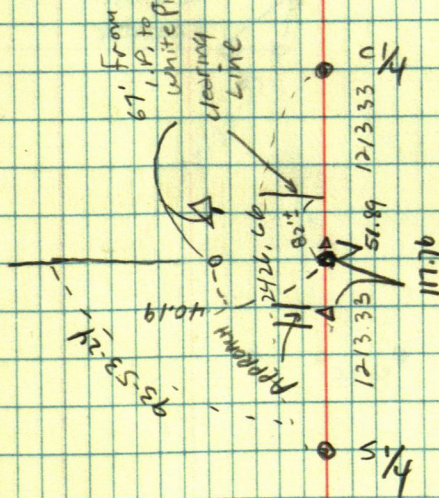 67' From
I.P. to
White Pi
clearing
Line
C 1/4
1213.33
82'±
2426.66
117.76
40.19
APPROACH
1213.33
93-53-24
S 1/4